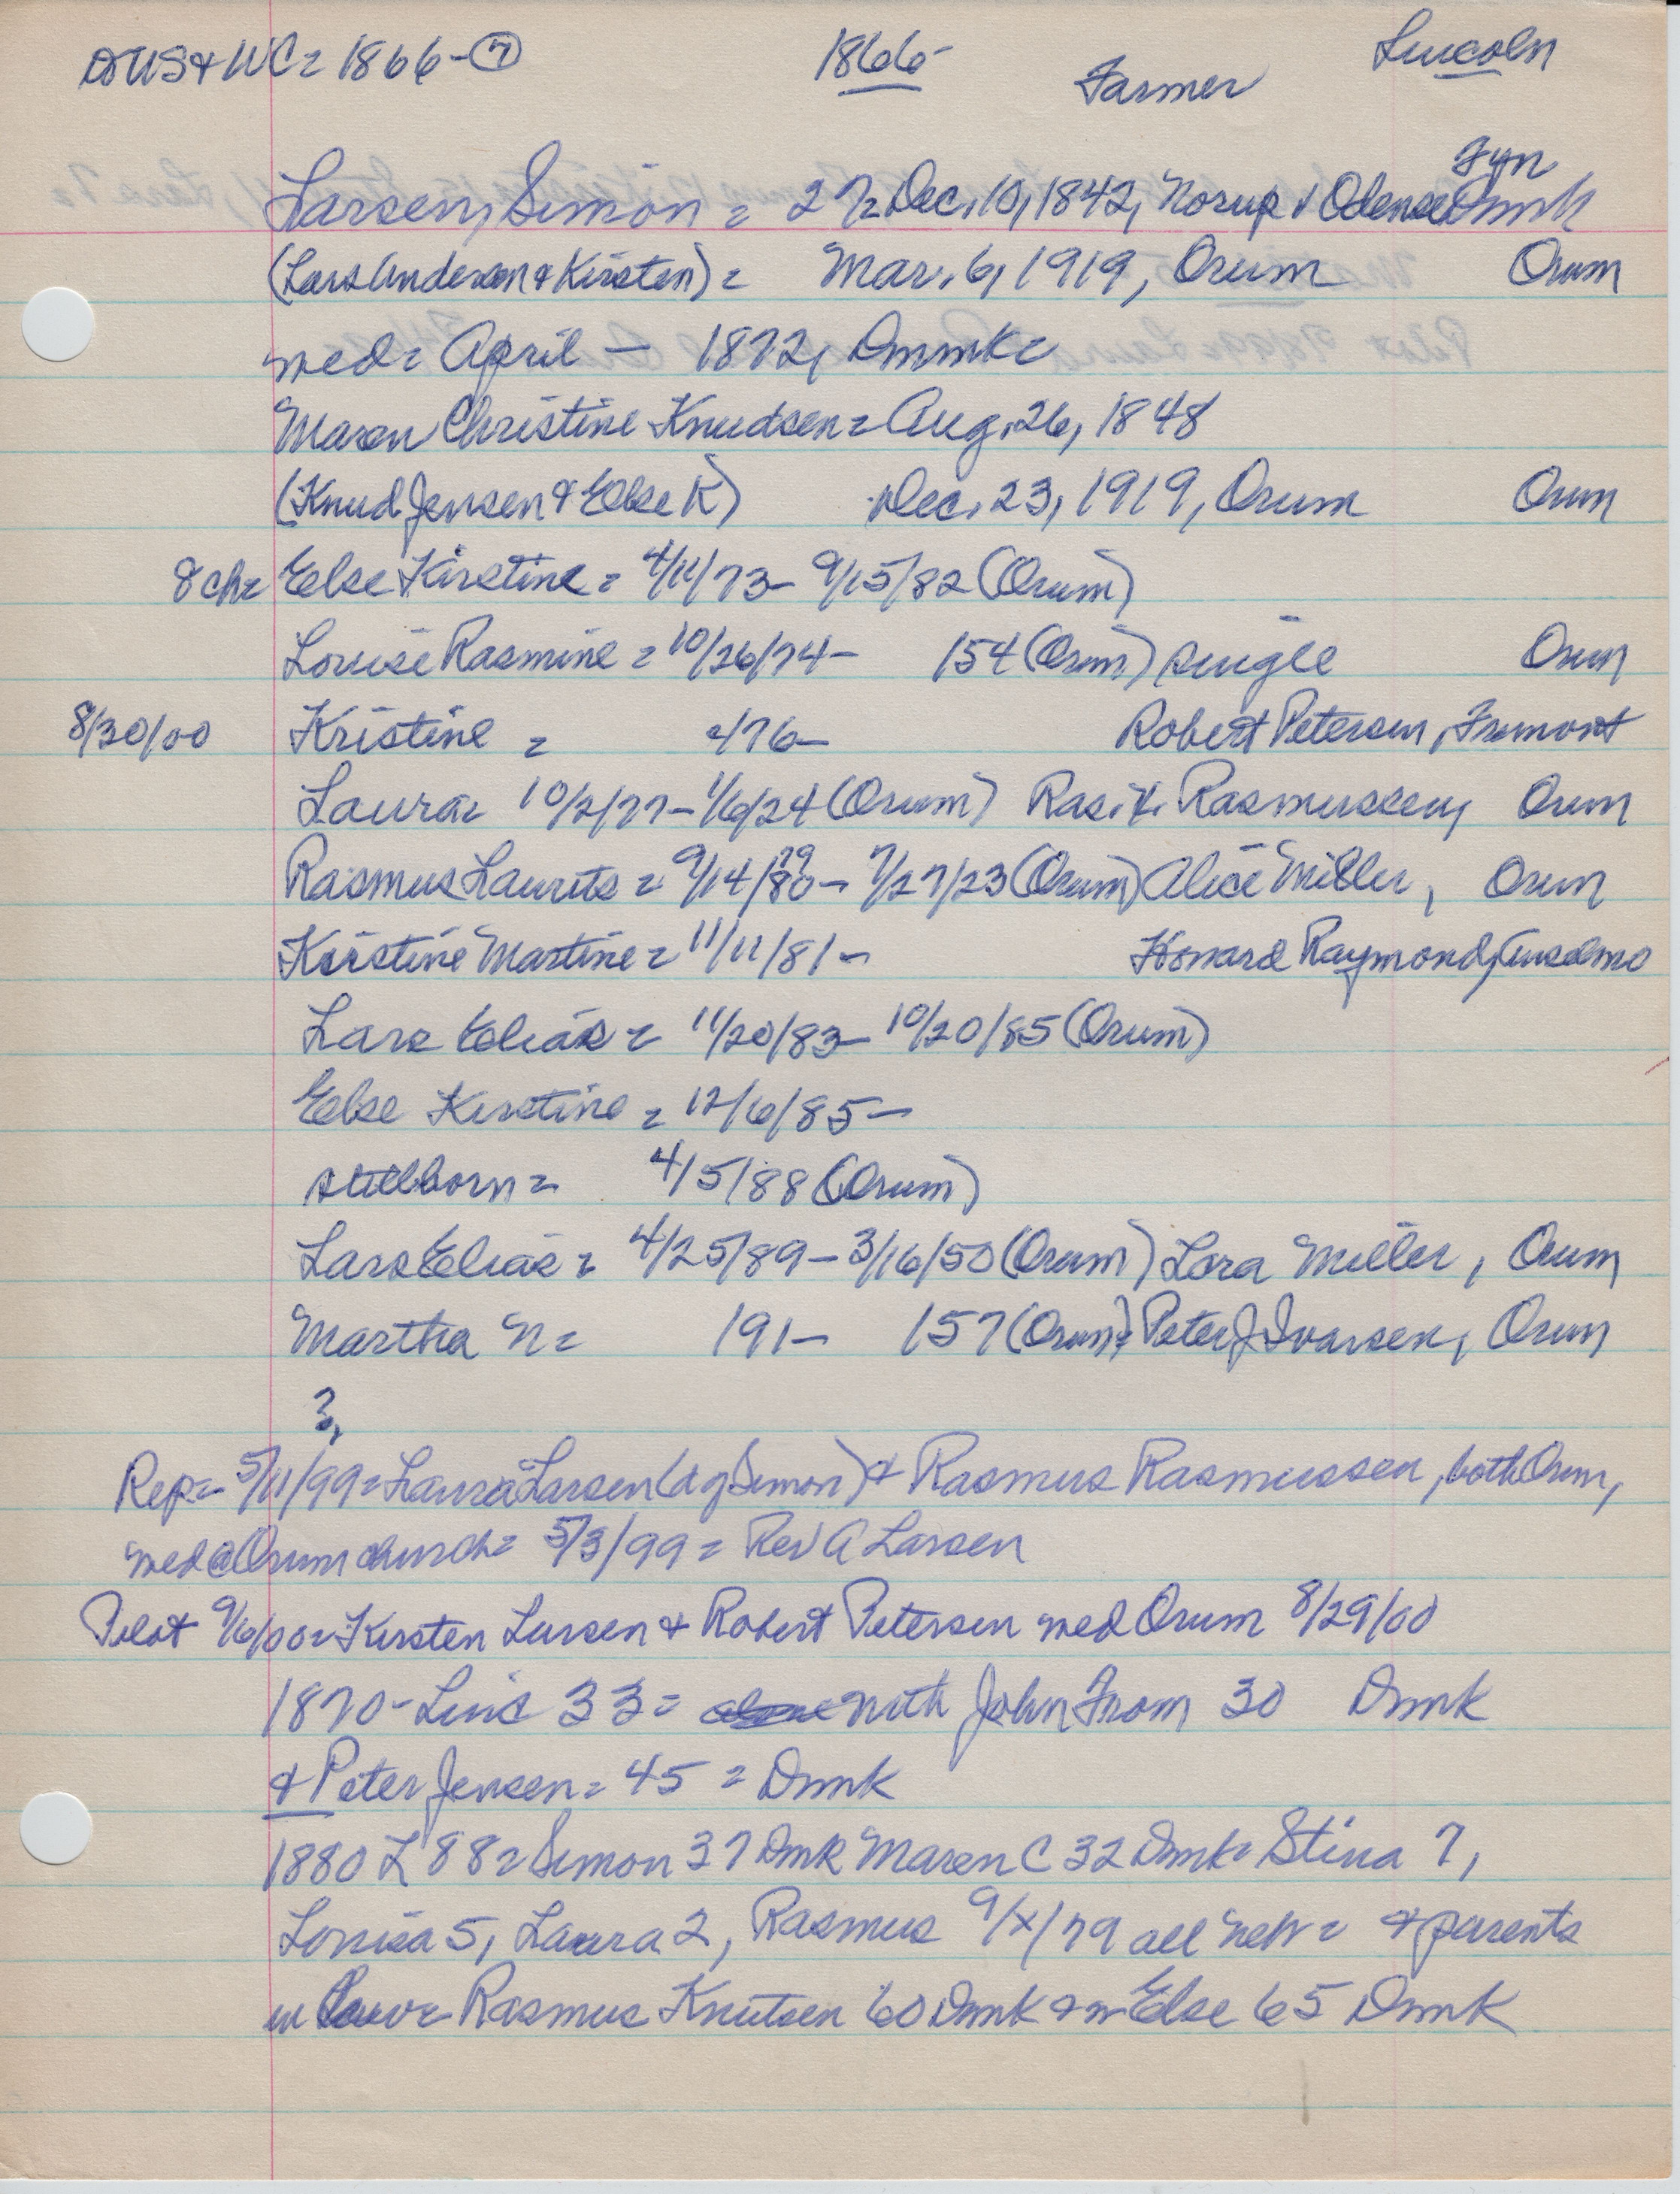 DUS & WC = 1866-⑦ 1866- Farmer Lincoln
Fyn
Larsen, Simon = 27 = Dec. 10, 1842, Norup, Odense Dmmk
(Lars Andersen & Kirsten) = Mar. 6, 1919, Orum Orum
med = April — 1872, Dmmk =
Maren Christine Knudsen = Aug. 26, 1848
(Knud Jensen & Else K) Dec. 23, 1919, Orum Orum
8 ch = Else Kirstine = 4/11/73 - 9/15/82 (Orum)
Louise Rasmine = 10/26/74 - 154 (Orum) single Orum
8/30/00 Kristine = 476 - Robert Petersen, Fremont
Laura = 10/2/77 - 1/6/24 (Orum) Ras. K. Rasmussen, Orum
79
Rasmus Laurits = 9/14/80 - 7/27/23 (Orum) Alice Miller, Orum
Kirstine Martine = 11/11/81 - Howard Raymond, Anselmo
Lars Elias = 11/20/83 - 10/20/85 (Orum)
Else Kirstine = 12/6/85 -
stillborn = 4/5/88 (Orum)
Lars Elias = 4/25/89 - 3/16/50 (Orum) Lora Miller, Orum
Martha N = 191 - 157 (Orum) Peter J Ivarsen, Orum
?
Rep = 5/11/99 = Laura Larsen (d of Simon) & Rasmus Rasmussen, both Orum,
med @ Orum church = 5/3/99 = Rev A Larsen
Pilot 9/6/00 = Kirsten Larsen & Robert Petersen med Orum 8/29/00
1870 - Linc 33 = with John From 30 Dmmk
& Peter Jensen = 45 = Dmmk
1880 L 88 = Simon 37 Dmk Maren C 32 Dmk = Stina 7,
Louisa 5, Laura 2, Rasmus 9/x/79 all Neb = & parents
in law = Rasmus Knutsen 60 Dmmk & w Else 65 Dmmk